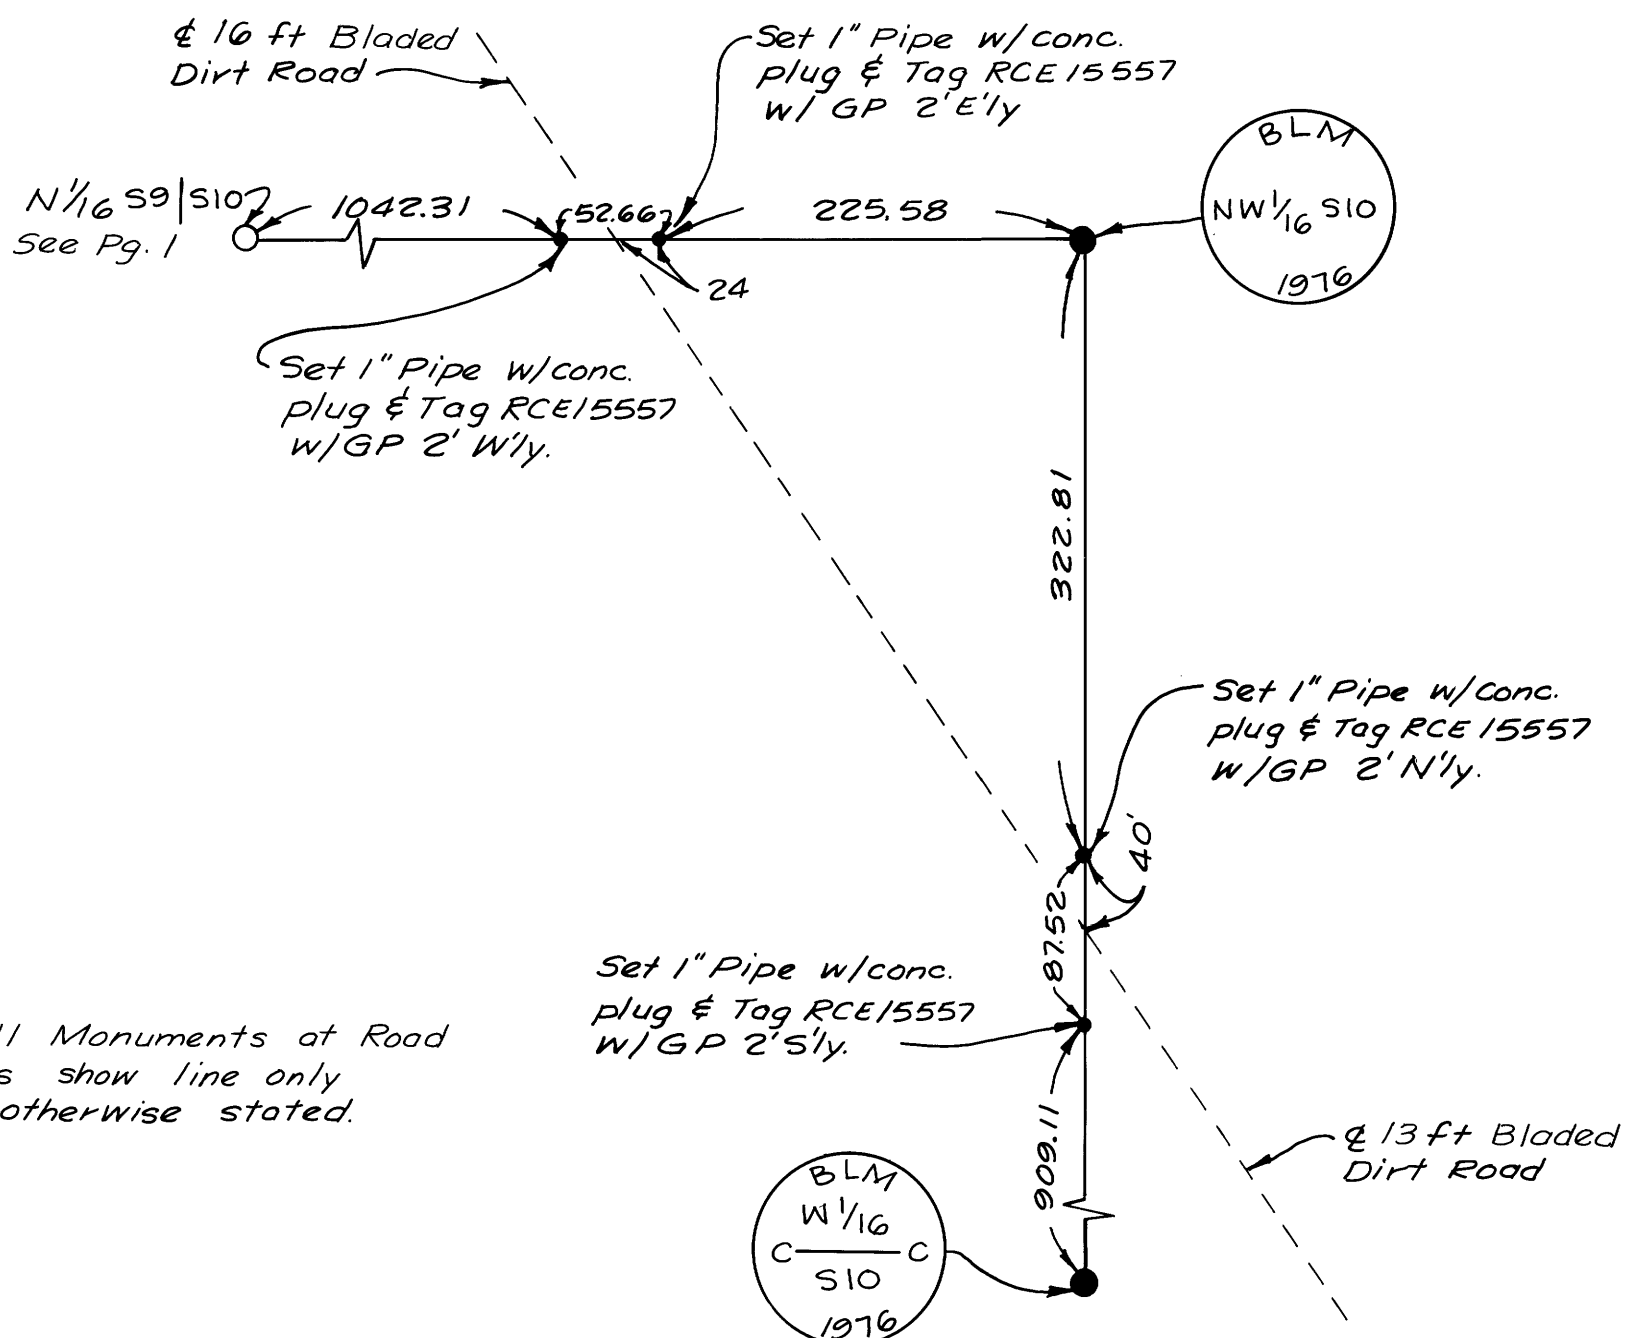 ℄ 16 ft Bladed
Dirt Road
Set 1" Pipe w/conc.
plug & Tag RCE 15557
w/ GP 2' E'ly
BLM
NW 1/16 S10
1976
N 1/16 S9|S10
See Pg. 1
1042.31
52.66
225.58
24
Set 1" Pipe w/conc.
plug & Tag RCE 15557
w/GP 2' W'ly.
322.81
Set 1" Pipe w/conc.
plug & Tag RCE 15557
w/GP 2' N'ly.
40'
87.52
Set 1" Pipe w/conc.
plug & Tag RCE 15557
w/GP 2' S'ly.
Monuments at Road
show line only
otherwise stated.
909.11
℄ 13 ft Bladed
Dirt Road
BLM
W 1/16
C C
S10
1976